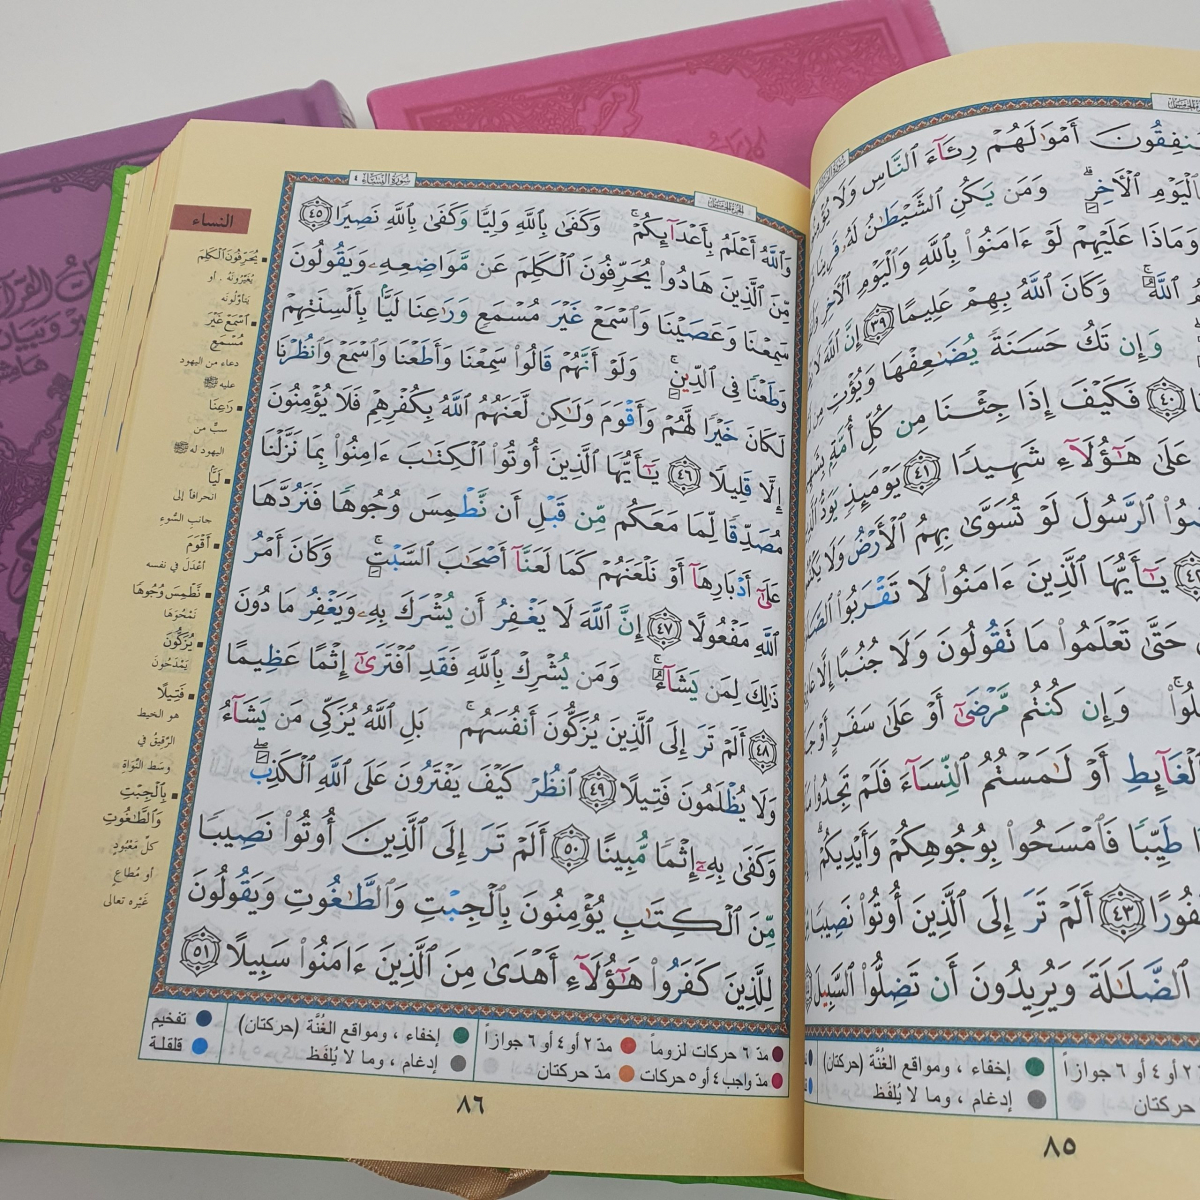 ـنفِقُونَ أَمْوَٰلَهُمْ رِئَآءَ ٱلنَّاسِ وَلَا
ٱلْيَوْمِ ٱلْـَٔاخِرِ ۗ وَمَن يَكُنِ ٱلشَّيْطَـٰنُ لَهُۥ
وَمَاذَا عَلَيْهِمْ لَوْ ءَامَنُوا۟ بِٱللَّهِ وَٱلْيَوْمِ ٱلْـَٔاخِرِ
ٱللَّهُ ۚ وَكَانَ ٱللَّهُ بِهِمْ عَلِيمًا ٣٩ إِنَّ ٱللَّهَ لَا
وَإِن تَكُ حَسَنَةً يُضَـٰعِفْهَا وَيُؤْتِ مِن
٤٠ فَكَيْفَ إِذَا جِئْنَا مِن كُلِّ أُمَّةٍۭ
عَلَىٰ هَـٰٓؤُلَآءِ شَهِيدًا ٤١ يَوْمَئِذٍ يَوَدُّ
ٱلرَّسُولَ لَوْ تُسَوَّىٰ بِهِمُ ٱلْأَرْضُ وَلَا
يَـٰٓأَيُّهَا ٱلَّذِينَ ءَامَنُوا۟ لَا تَقْرَبُوا۟
حَتَّىٰ تَعْلَمُوا۟ مَا تَقُولُونَ وَلَا جُنُبًا إِلَّا
وَإِن كُنتُم مَّرْضَىٰٓ أَوْ عَلَىٰ سَفَرٍ أَوْ
ٱلْغَآئِطِ أَوْ لَـٰمَسْتُمُ ٱلنِّسَآءَ فَلَمْ تَجِدُوا۟
طَيِّبًا فَٱمْسَحُوا۟ بِوُجُوهِكُمْ وَأَيْدِيكُمْ ۗ
ـفُورًا ٤٣ أَلَمْ تَرَ إِلَى ٱلَّذِينَ أُوتُوا۟ نَصِيبًا
ٱلضَّلَـٰلَةَ وَيُرِيدُونَ أَن تَضِلُّوا۟ ٱلسَّبِيلَ
إخفاء ، ومواقع الغُنَّة (حركتان)
٢ أو ٤ أو ٦ جوازاً
إدغام ، وما لا يُلفَظ
حركتان
٨٥
سُورَةُ النِّسَاءِ ٤
وَٱللَّهُ أَعْلَمُ بِأَعْدَآئِكُمْ ۚ وَكَفَىٰ بِٱللَّهِ وَلِيًّا وَكَفَىٰ بِٱللَّهِ نَصِيرًا ٤٥
مِّنَ ٱلَّذِينَ هَادُوا۟ يُحَرِّفُونَ ٱلْكَلِمَ عَن مَّوَاضِعِهِۦ وَيَقُولُونَ
سَمِعْنَا وَعَصَيْنَا وَٱسْمَعْ غَيْرَ مُسْمَعٍ وَرَٰعِنَا لَيًّۢا بِأَلْسِنَتِهِمْ
وَطَعْنًا فِى ٱلدِّينِ ۚ وَلَوْ أَنَّهُمْ قَالُوا۟ سَمِعْنَا وَأَطَعْنَا وَٱسْمَعْ وَٱنظُرْنَا
لَكَانَ خَيْرًا لَّهُمْ وَأَقْوَمَ وَلَـٰكِن لَّعَنَهُمُ ٱللَّهُ بِكُفْرِهِمْ فَلَا يُؤْمِنُونَ
إِلَّا قَلِيلًا ٤٦ يَـٰٓأَيُّهَا ٱلَّذِينَ أُوتُوا۟ ٱلْكِتَـٰبَ ءَامِنُوا۟ بِمَا نَزَّلْنَا
مُصَدِّقًا لِّمَا مَعَكُم مِّن قَبْلِ أَن نَّطْمِسَ وُجُوهًا فَنَرُدَّهَا
عَلَىٰٓ أَدْبَارِهَآ أَوْ نَلْعَنَهُمْ كَمَا لَعَنَّآ أَصْحَـٰبَ ٱلسَّبْتِ ۚ وَكَانَ أَمْرُ
ٱللَّهِ مَفْعُولًا ٤٧ إِنَّ ٱللَّهَ لَا يَغْفِرُ أَن يُشْرَكَ بِهِۦ وَيَغْفِرُ مَا دُونَ
ذَٰلِكَ لِمَن يَشَآءُ ۚ وَمَن يُشْرِكْ بِٱللَّهِ فَقَدِ ٱفْتَرَىٰٓ إِثْمًا عَظِيمًا
٤٨ أَلَمْ تَرَ إِلَى ٱلَّذِينَ يُزَكُّونَ أَنفُسَهُم ۚ بَلِ ٱللَّهُ يُزَكِّى مَن يَشَآءُ
وَلَا يُظْلَمُونَ فَتِيلًا ٤٩ ٱنظُرْ كَيْفَ يَفْتَرُونَ عَلَى ٱللَّهِ ٱلْكَذِبَ ۖ
وَكَفَىٰ بِهِۦٓ إِثْمًا مُّبِينًا ٥٠ أَلَمْ تَرَ إِلَى ٱلَّذِينَ أُوتُوا۟ نَصِيبًا
مِّنَ ٱلْكِتَـٰبِ يُؤْمِنُونَ بِٱلْجِبْتِ وَٱلطَّـٰغُوتِ وَيَقُولُونَ
لِلَّذِينَ كَفَرُوا۟ هَـٰٓؤُلَآءِ أَهْدَىٰ مِنَ ٱلَّذِينَ ءَامَنُوا۟ سَبِيلًا ٥١
النساء
يُحَرِّفُونَ الْكَلِمَ
يُغَيِّرُونَهُ ، أو
يتأوَّلُونَه
اسْمَعْ غَيْرَ
مُسْمَعٍ
دعاء من اليهود
عليه ﷺ
رَاعِنَا
سبٌّ من
اليهود له ﷺ
لَيًّا
انحرافاً إلى
جانبِ السُّوءِ
أَقْوَمَ
أعْدَلَ في نفسه
نَطْمِسَ وُجُوهًا
نَمْحُوَهَا
يُزَكُّونَ
يَمْدَحُونَ
فَتِيلًا
هو الخيط
الرَّقيقُ في
وسَط النَّواةِ
بِالْجِبْتِ
وَالطَّاغُوتِ
كلّ مَعْبُودٍ
أو مُطاعٍ
غَيْره تعالى
مدّ ٦ حركات لزوماً
مدّ ٢ أو ٤ أو ٦ جوازاً
إخفاء ، ومواقع الغُنَّة (حركتان)
تفخيم
مدّ واجب ٤ أو ٥ حركات
مدّ حركتان
إدغام ، وما لا يُلفَظ
قلقلة
٨٦